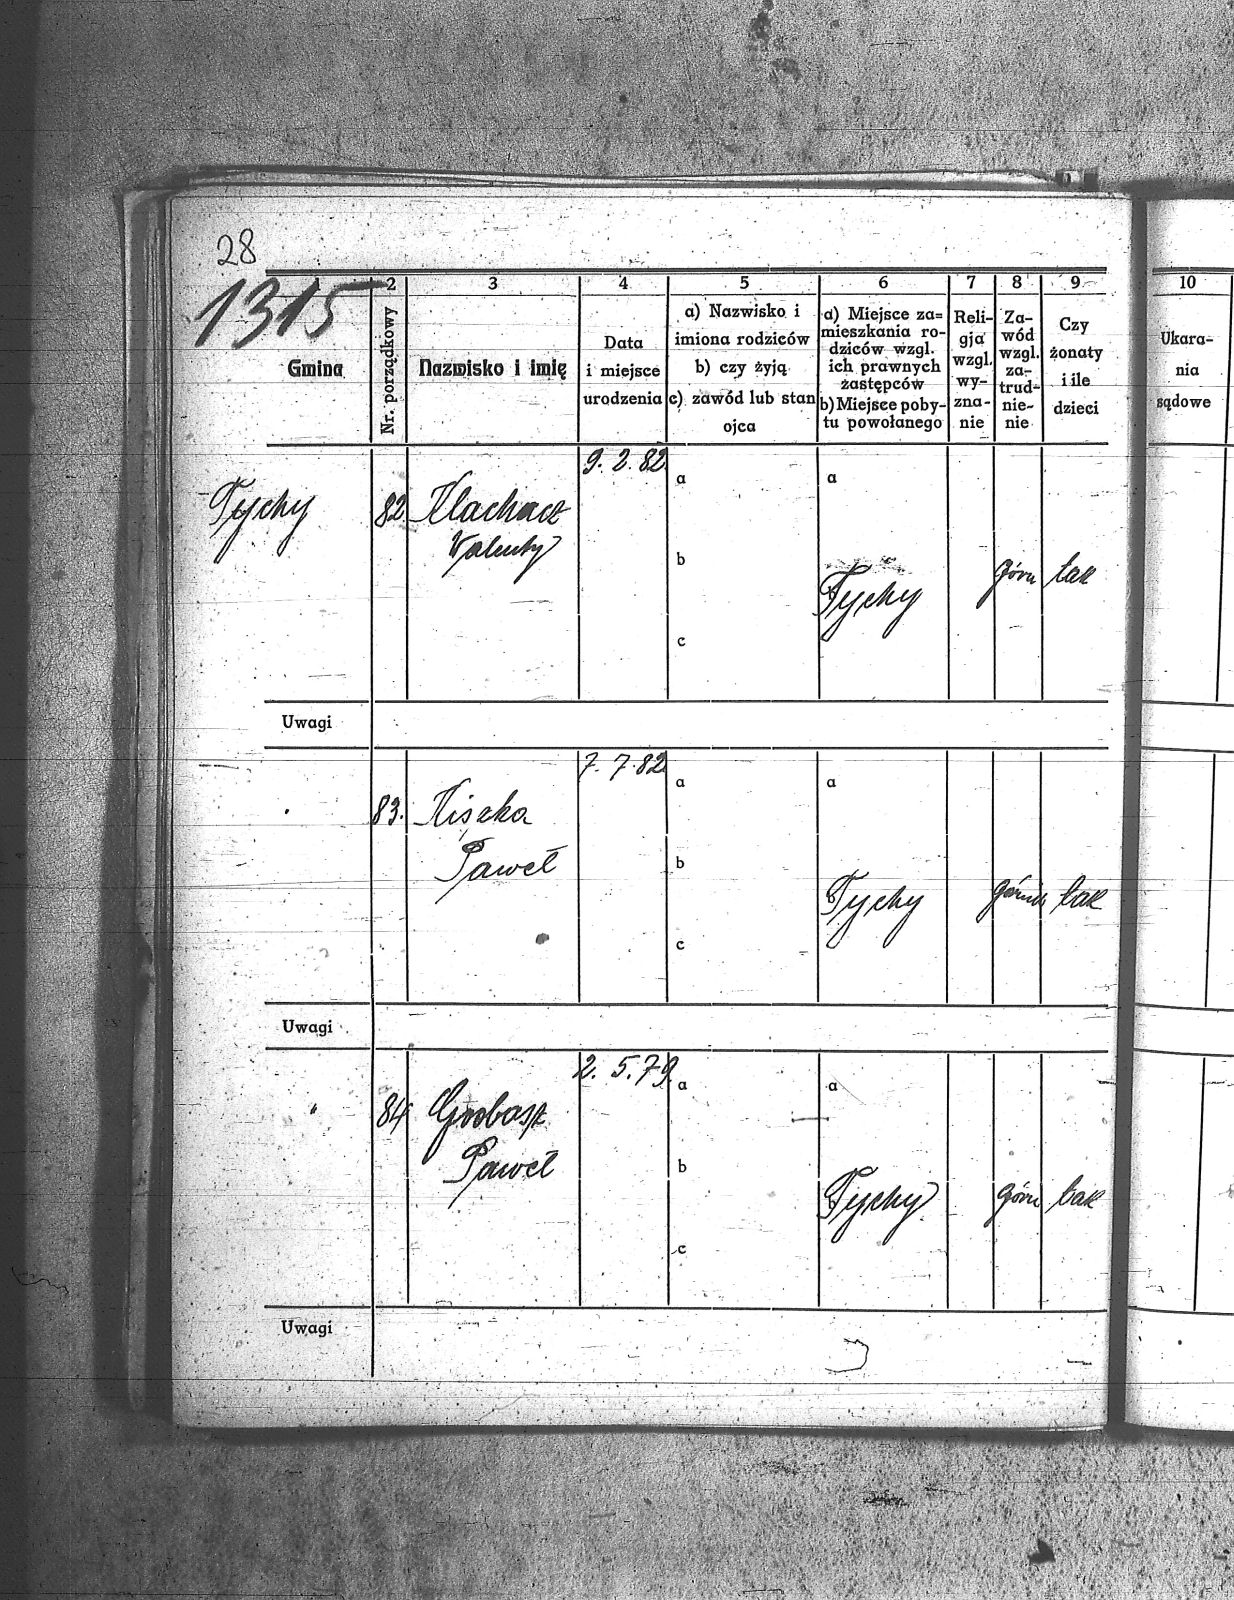 28
1315
2 3 4 5 6 7 8 9 10
Gmina
Nr. porządkowy
Nazwisko i imię
Data
i miejsce
urodzenia
a) Nazwisko i
imiona rodziców
b) czy żyją
c) zawód lub stan
ojca
a) Miejsce za=
mieszkania ro-
dziców wzgl.
ich prawnych
zastępców
b) Miejsce poby-
tu powołanego
Reli-
gja
wzgl.
wy-
zna-
nie
Za-
wód
wzgl.
za-
trud-
nie-
nie
Czy
żonaty
i ile
dzieci
Ukara-
nia
sądowe
9. 2. 82
a a
Tychy 82 Klachacz
Walenty
b
Tychy górn tak
c
Uwagi
7. 7. 82
a a
83. Kiszka
Paweł
b
Tychy górnik tak
c
Uwagi
2. 5. 79.
a a
" 84 Grobasz
Paweł
b
Tychy górn tak
c
Uwagi